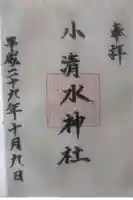 奉拝
小清水神社
平成二十九年十月九日